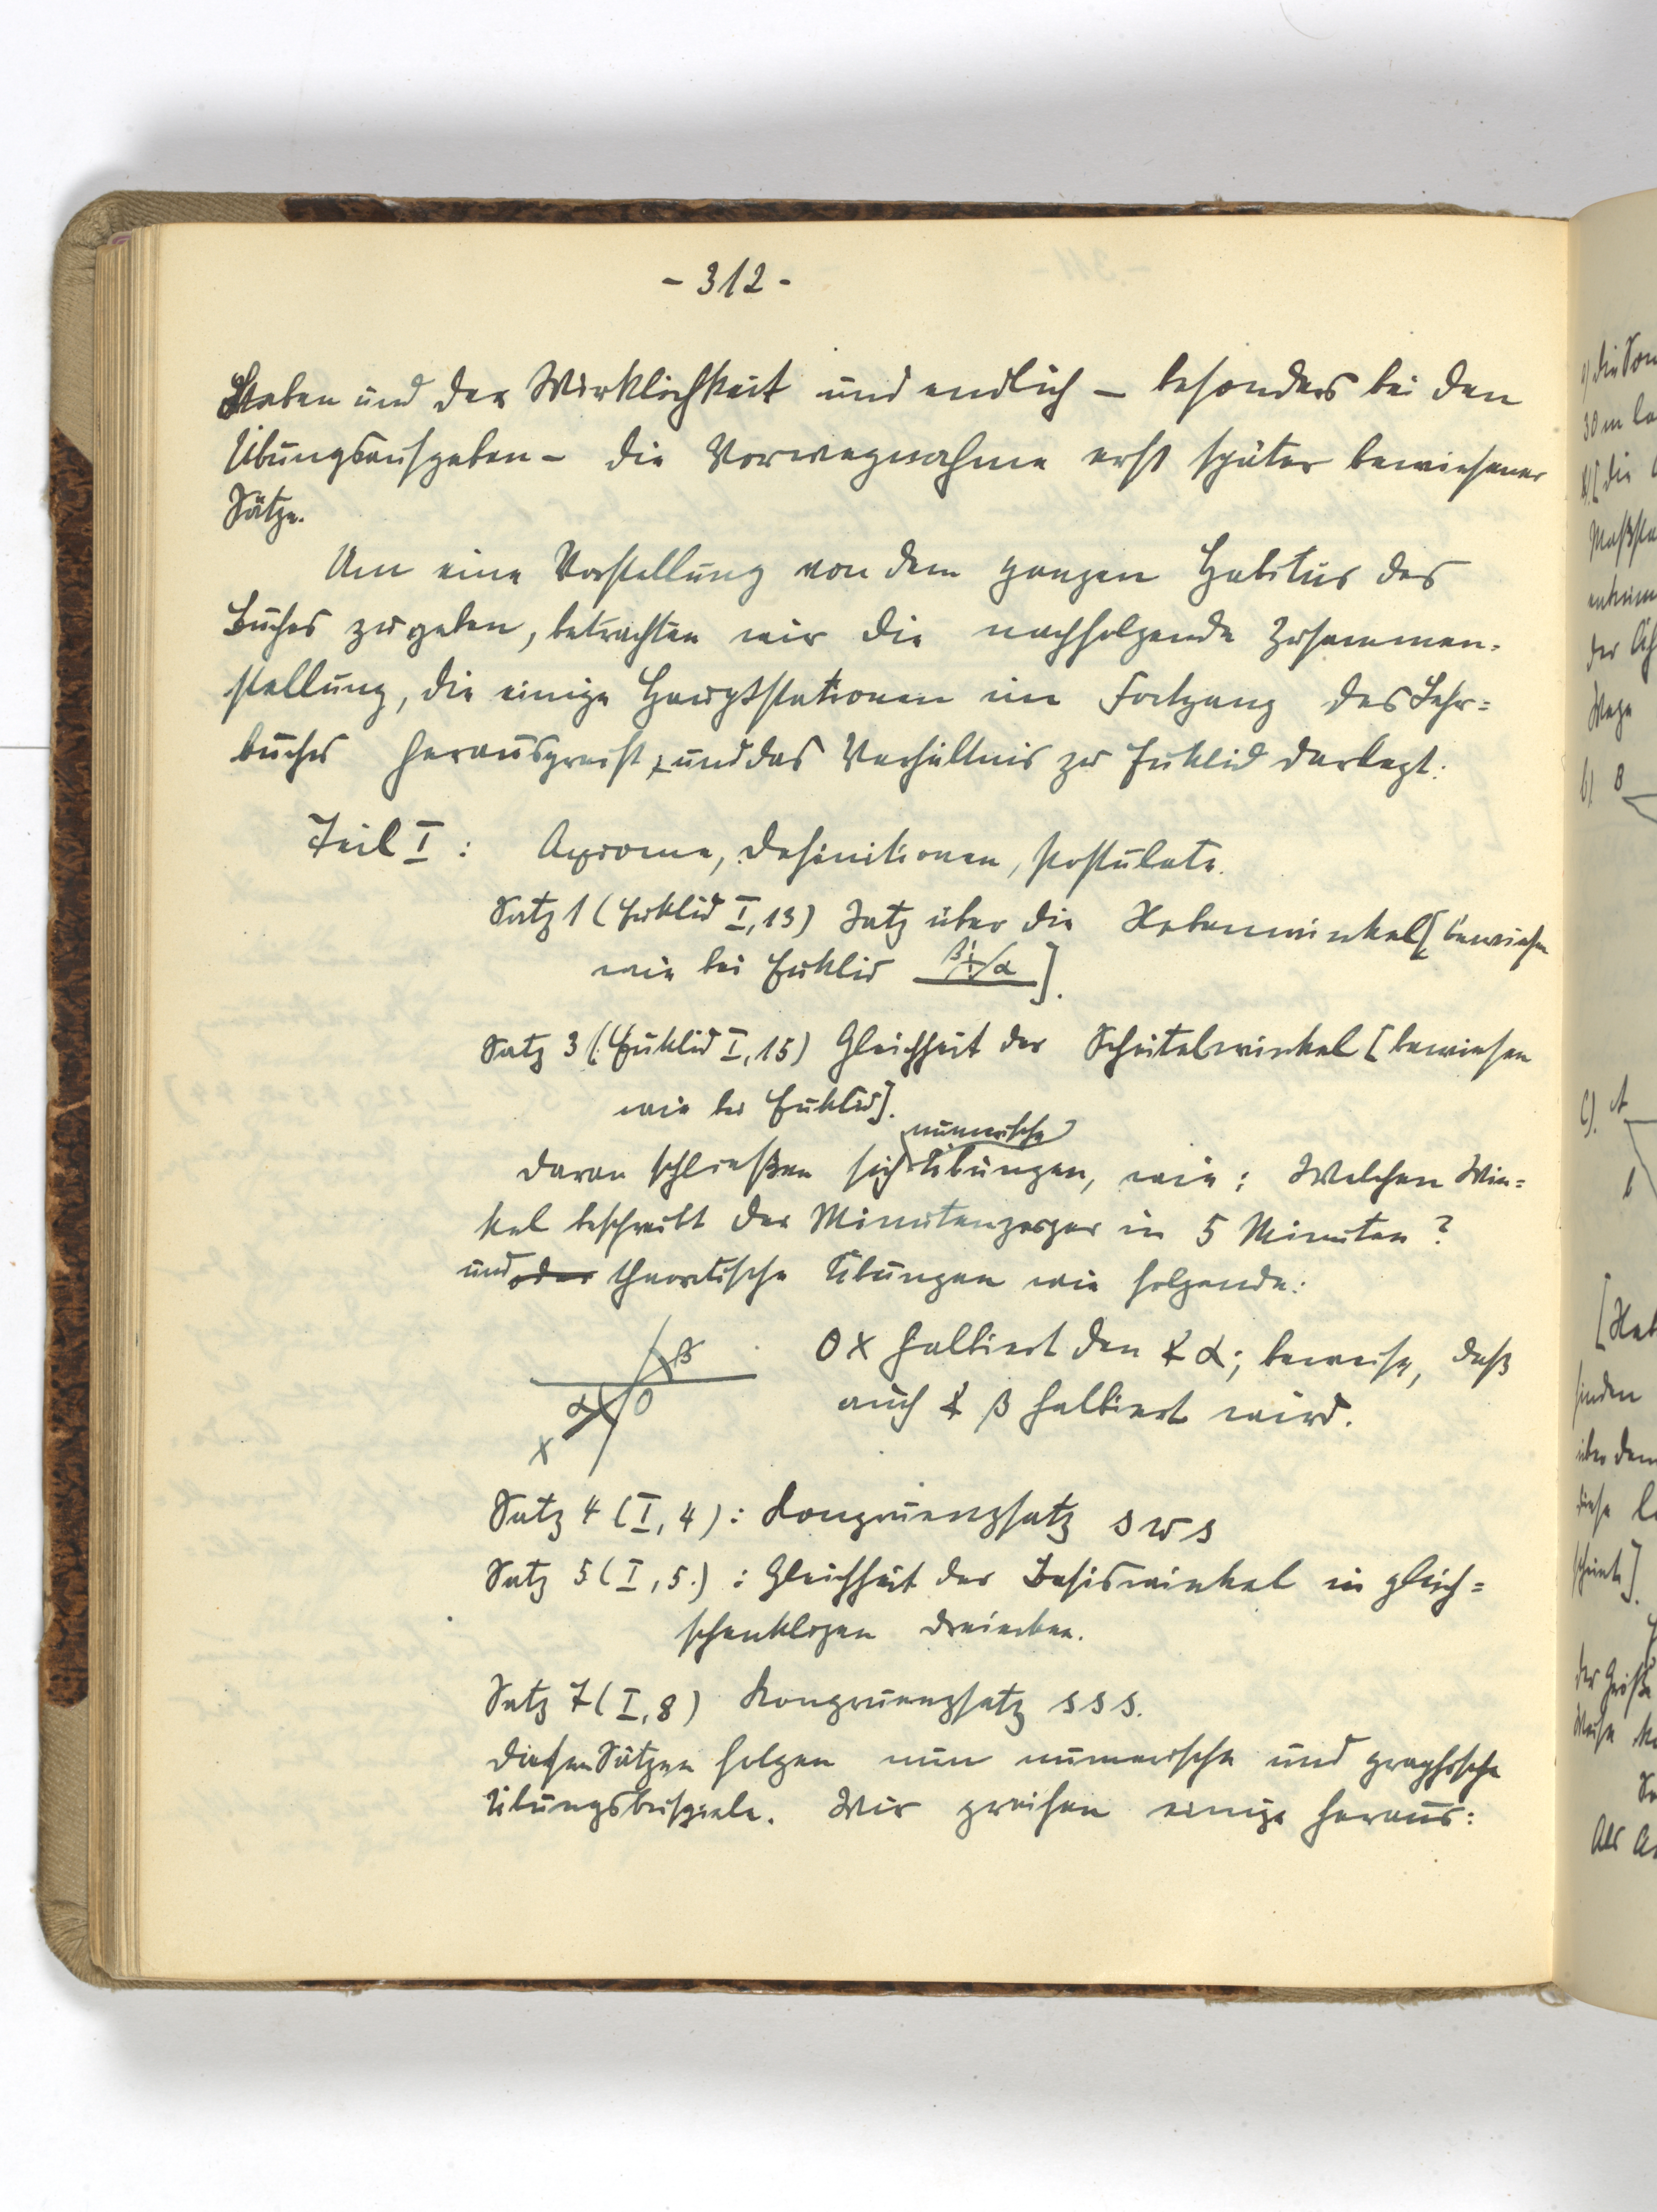 - 312 -
Staben und der Wirklichkeit und endlich – besonders bei den
Übungsaufgaben – die Vorwegnahme erst später bewiesener
Sätze.
Um eine Vorstellung von dem ganzen Habitus des
Buches zu geben, betrachten wir die nachfolgende Zusammen-
stellung, die einige Hauptstationen im Fortgang des Lehr=
buches herausgreift, und das Verhältnis zu Euklid darlegt:
Teil I : Axiome, Definitionen, Postulate.
Satz 1 (Euklid I, 13) Satz über die Nebenwinkel [bewiesen
wie bei Euklid β α ].
Satz 3 (Euklid I, 15) Gleichheit der Scheitelwinkel [bewiesen
wie bei Euklid].
numerische
Daran schließen sich Übungen, wie: Welchen Win=
kel beschreibt der Minutenzeiger in 5 Minuten?
und oder theoretische Übungen wie folgende:
β
α O
X
OX halbiert den ∢ α; beweise, daß
auch ∢ β halbiert wird.
Satz 4 (I, 4) : Kongruenzsatz s w s
Satz 5 (I, 5.) : Gleichheit der Basiswinkel in gleich=
schenkligen Dreiecken.
Satz 7 (I, 8) Kongruenzsatz s s s.
Diesen Sätzen folgen nun numerische und graphische
Übungsbeispiele. Wir greifen einige heraus: